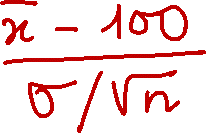 x̄ - 100
σ/√n